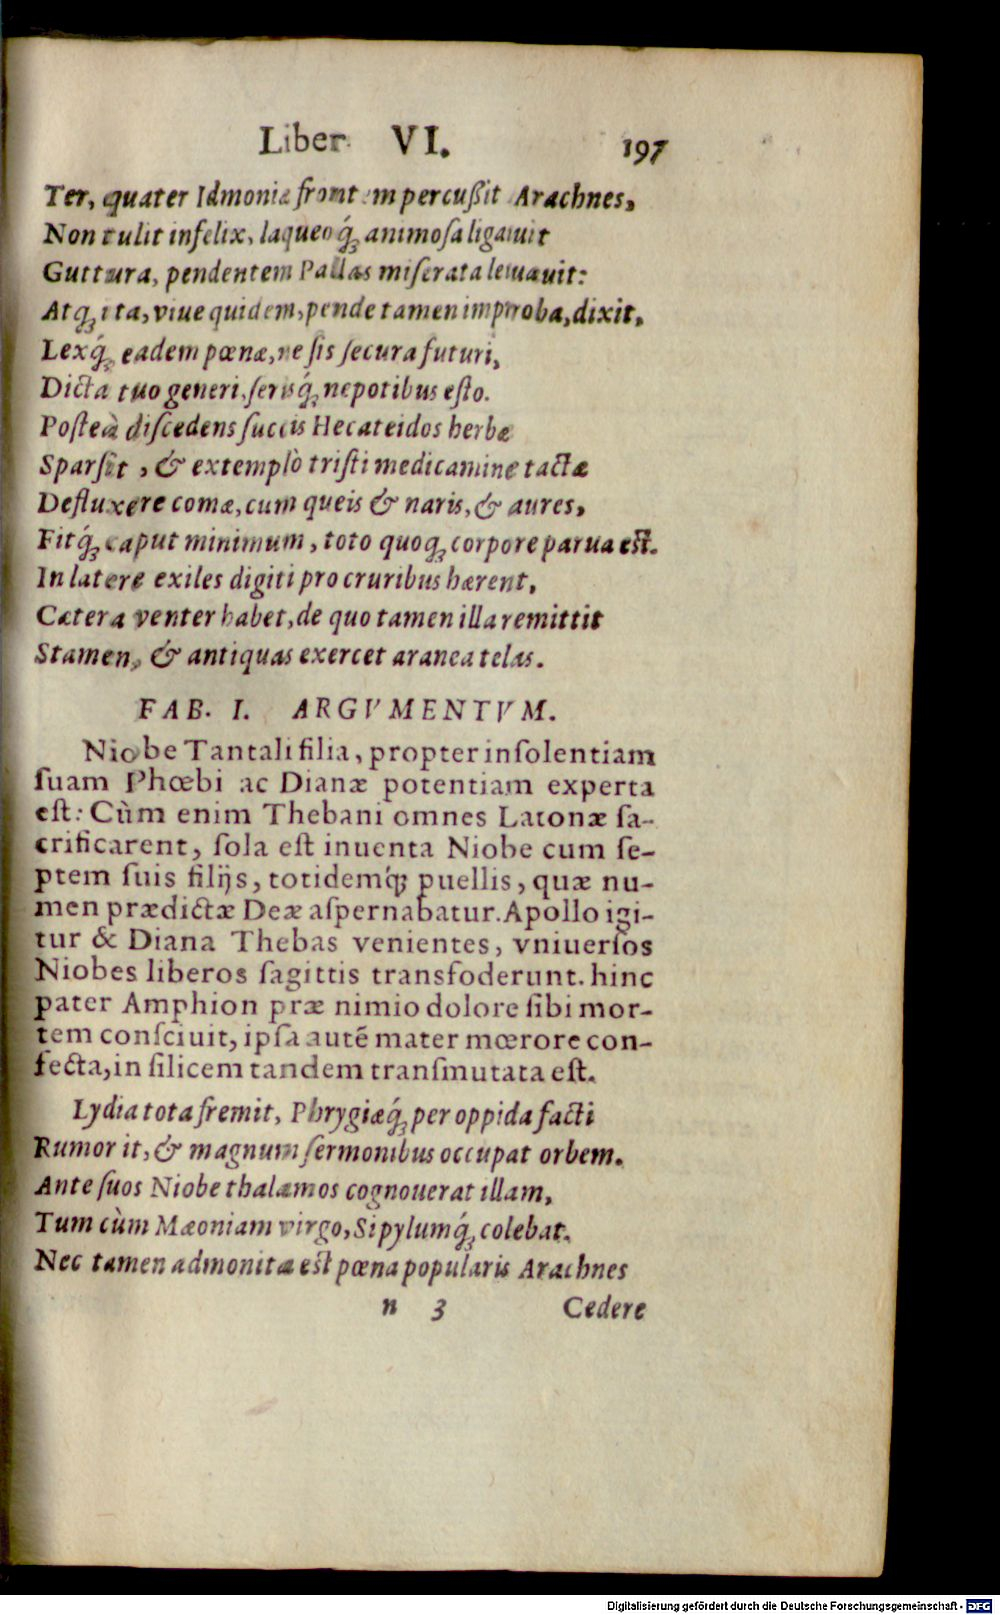 Liber VI. 197
Ter, quater Idmoniæ frontem percußit Arachnes,
Non tulit infelix, laqueoq́ꝫ animosa ligauit
Guttura, pendentem Pallas miserata leuauit:
Atqꝫ ita, viue quidem, pende tamen improba, dixit,
Lexq́ꝫ eadem pœnæ, ne sis secura futuri,
Dicta tuo generi, serisq́ꝫ nepotibus esto.
Posteà discedens succis Hecateidos herbæ
Sparsit, & extemplò tristi medicamine tactæ
Defluxere comæ, cum queis & naris, & aures,
Fitq́ꝫ caput minimum, toto quoqꝫ corpore parua est.
In latere exiles digiti pro cruribus hærent,
Cætera venter habet, de quo tamen illa remittit
Stamen, & antiquas exercet aranea telas.
FAB. I. ARGVMENTVM.
Niobe Tantali filia, propter insolentiam
suam Phœbi ac Dianæ potentiam experta
est: Cùm enim Thebani omnes Latonæ sa-
crificarent, sola est inuenta Niobe cum se-
ptem suis filijs, totidemq́ꝫ puellis, quæ nu-
men prædictæ Deæ aspernabatur. Apollo igi-
tur & Diana Thebas venientes, vniuersos
Niobes liberos sagittis transfoderunt. hinc
pater Amphion præ nimio dolore sibi mor-
tem consciuit, ipsa autē mater mœrore con-
fecta, in silicem tandem transmutata est.
Lydia tota fremit, Phrygiæq́ꝫ per oppida facti
Rumor it, & magnum sermonibus occupat orbem.
Ante suos Niobe thalamos cognouerat illam,
Tum cùm Mæoniam virgo, Sipylumq́ꝫ colebat.
Nec tamen admonita est pœna popularis Arachnes
n 3 Cedere
Digitalisierung gefördert durch die Deutsche Forschungsgemeinschaft - DFG